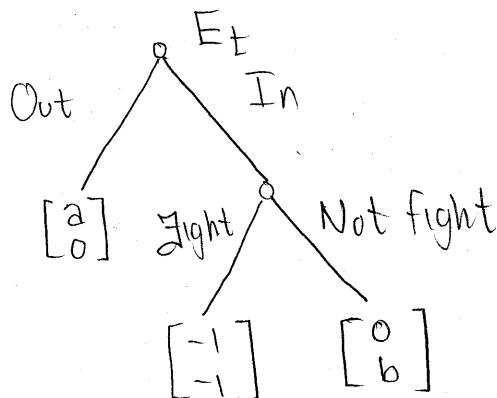 Et
Out In
[a 0] Fight Not fight
[-1 -1] [0 b]